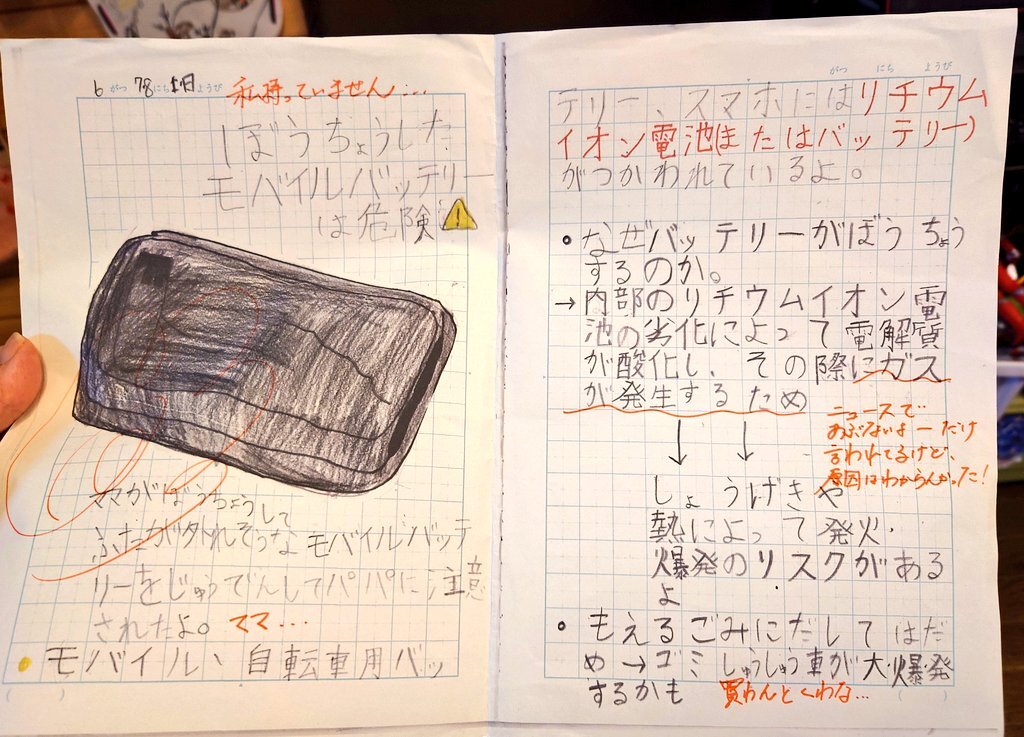 6 がつ 7,8 にち 土,日 ようび
私持っていません…
ぼうちょうした
モバイルバッテリー
は危険
ママがぼうちょうして
ふたが外れそうなモバイルバッテ
リーをじゅうでんしてパパに注意
されたよ。ママ…
モバイル、自転車用バッ
がつ にち ようび
テリー、スマホにはリチウム
イオン電池(またはバッテリー)
がつかわれているよ。
なぜバッテリーがぼうちょう
するのか。
→内部のリチウムイオン電
池の劣化によって電解質
が酸化し、その際にガス
が発生するため
ニュースで
あぶないよーだけ
言われてるけど、
原因はわからんかった!
↓ ↓
しょうげきや
熱によって発火・
爆発のリスクがある
よ
もえるごみにだしてはだ
め→ゴミしゅうしゅう車が大爆発
するかも
買わんとくわな…